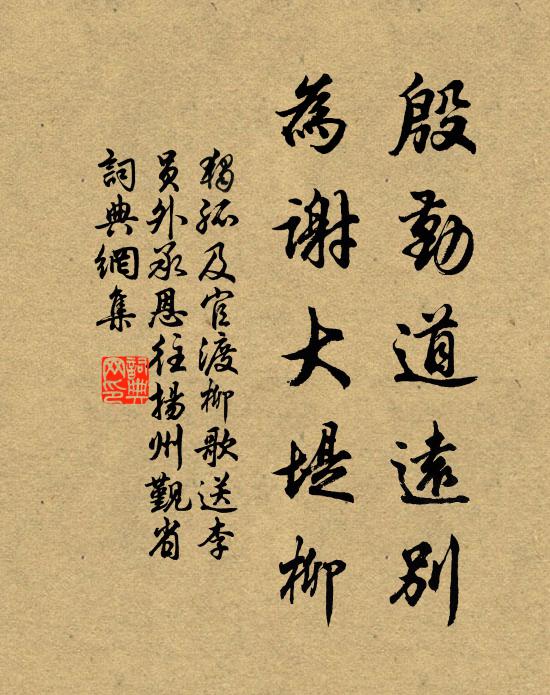 殷勤道遠別
為謝大堤柳
獨孤及官渡柳歌送李
員外承恩往揚州覲省
詞典網集
詞典
网印